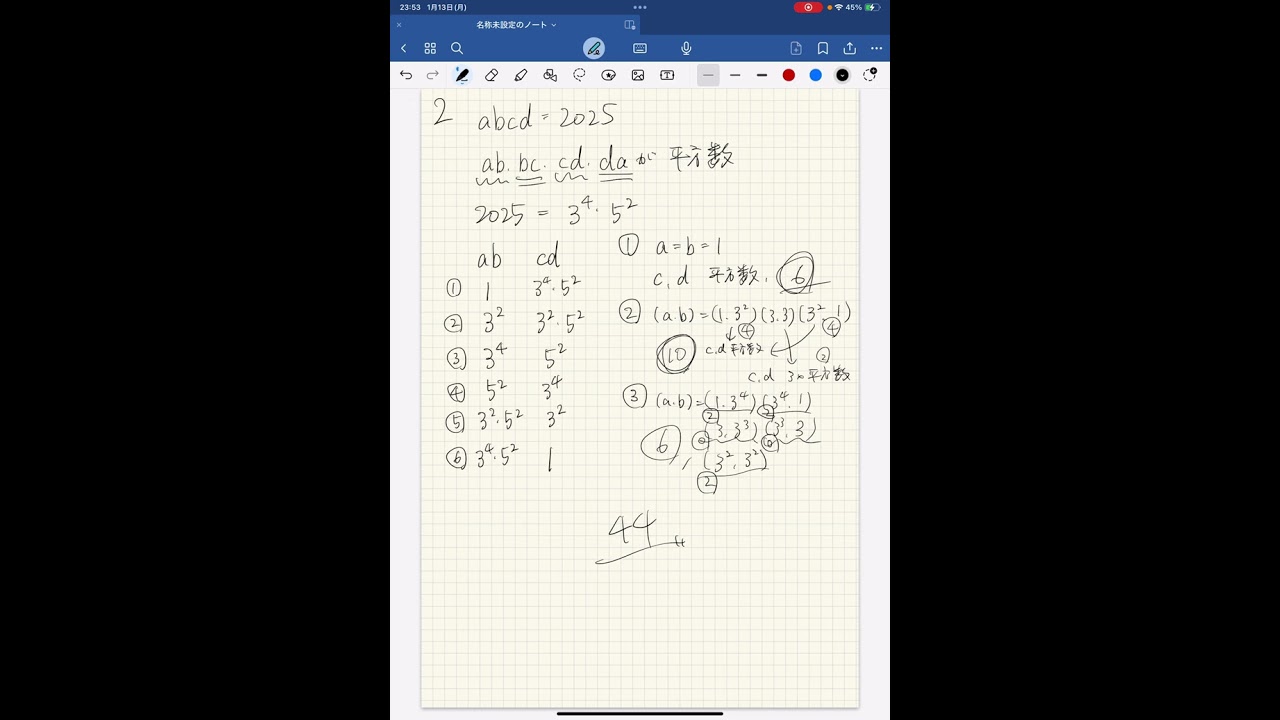 23:53 1月13日(月)
45%
名称未設定のノート
2 abcd = 2025
ab. bc. cd. da が 平方数
2025 = 3⁴・5²
ab cd
① 1 3⁴・5²
② 3² 3²・5²
③ 3⁴ 5²
④ 5² 3⁴
⑤ 3²・5² 3²
⑥ 3⁴・5² 1
① a=b=1
c, d 平方数, 6
② (a.b)=(1.3²)(3.3)(3².1)
④ ④
10 c.d 平方数 ②
c, d 3×平方数
③ (a.b)=(1.3⁴)(3⁴.1)
② ②
(3, 3³)(3³, 3)
6 ⓪ ⓪
(3², 3²)
②
44